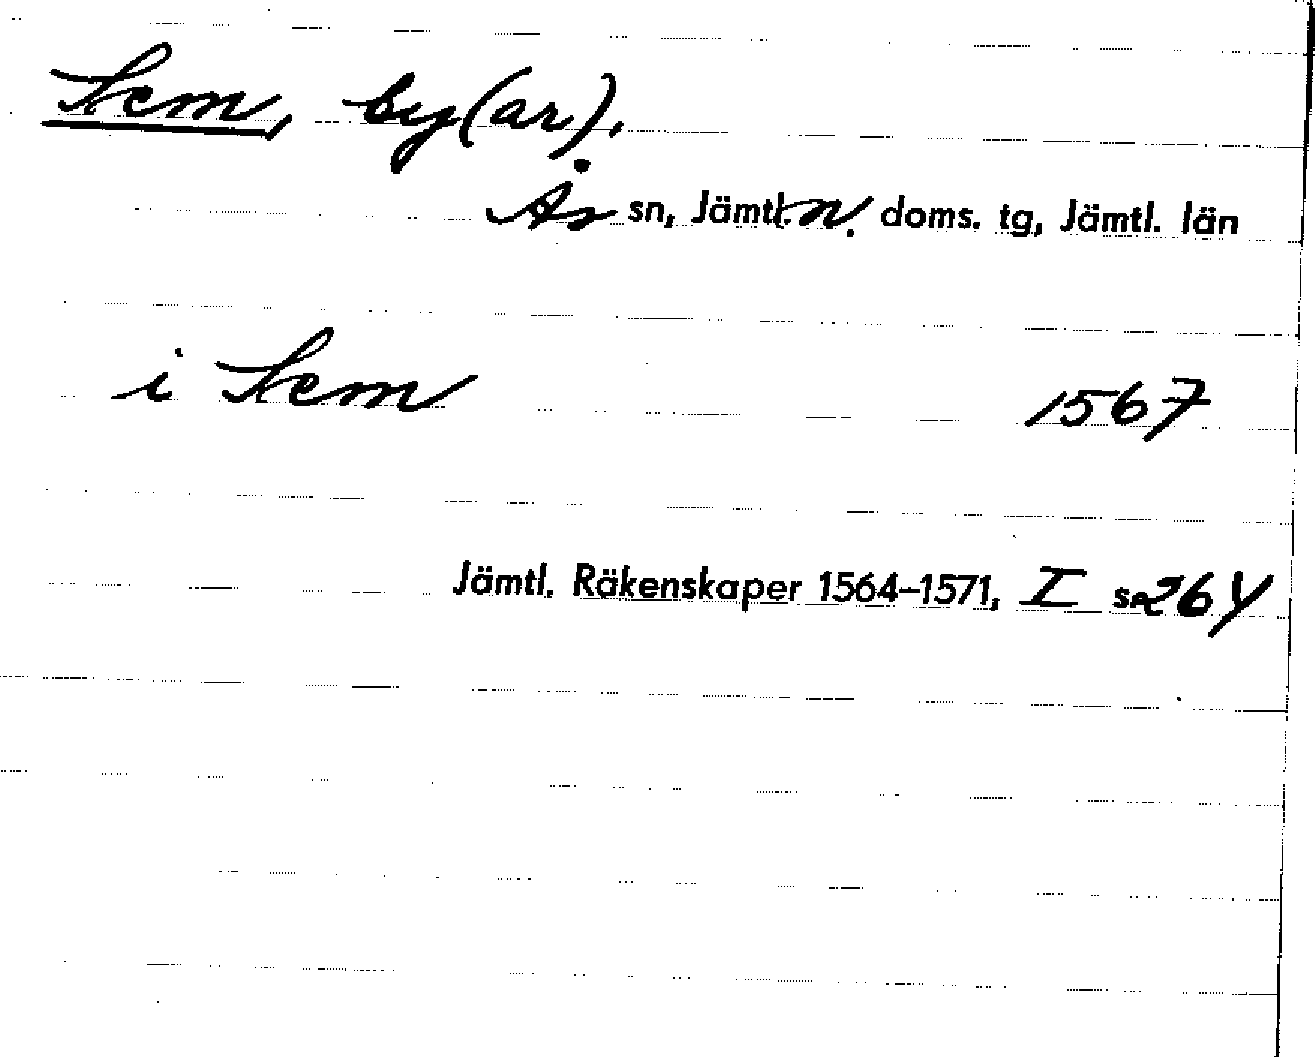 Sem, by(ar).
Ås sn, Jämtl. n. doms. tg, Jämtl. län
i Sem 1567
Jämtl. Räkenskaper 1564–1571, I s. 264